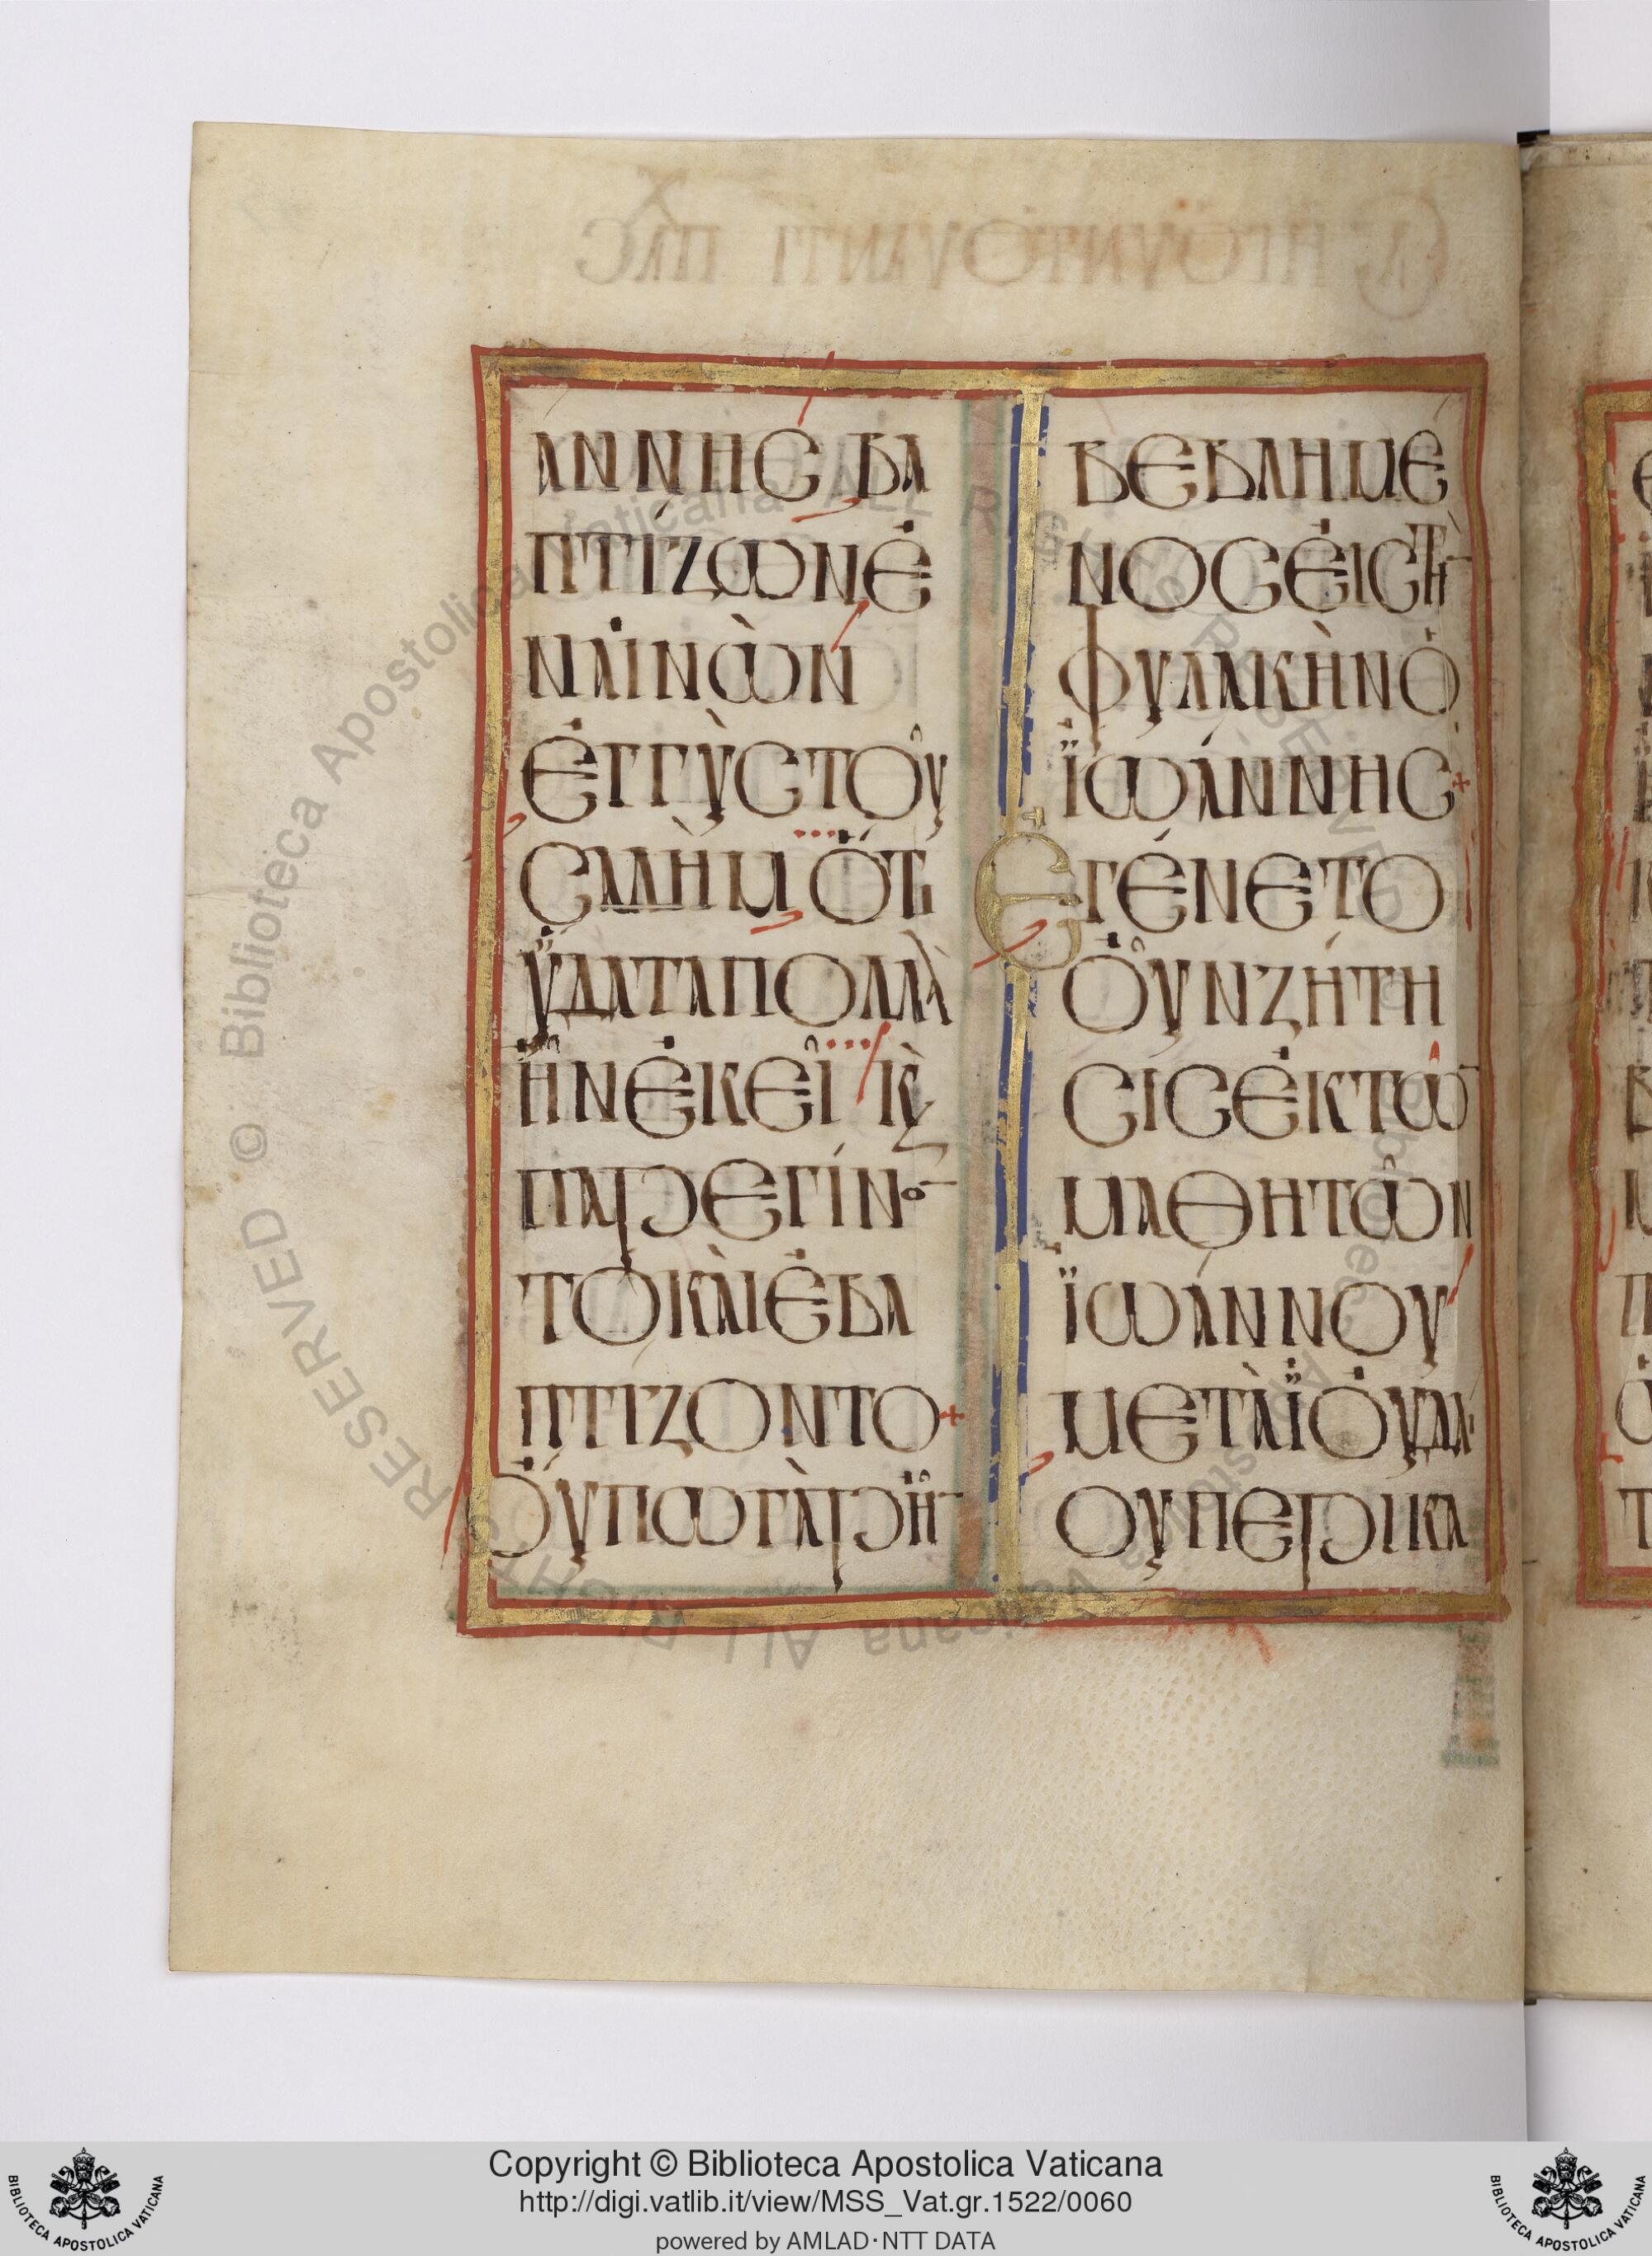 ΑΝΝΗϹ ΒΑ
ΠΤΙΖΩΝἘ
ΝΑἸΝῺΝ
ἘΓΓῪϹΤΟῦ
ϹΑΛῊΜ ὍΤΙ
ὝΔΑΤΑΠΟΛΛᾺ
ἮΝἘΚΕῖ Κ̀
ΠΑΡΕΓΊΝΟ
ΤΟΚᾺΙἘΒΑ
ΠΤΙΖΟΝΤΟ+
ὌΥΠΩΓᾺΡἮ
ΒΕΒΛΗΜΕ
ΝΟϹἘΙϹΤῊ
ΦΥΛΑΚῊΝὉ
ΪΩΆΝΝΗϹ+
ΕΓΈΝΕΤΟ
ὋΥΝΖΉΤΗ
ϹΙϹἘΚΤΩ͂
ΜΑΘΗΤΩ͂Ν
ΪΩΆΝΝΟΥ
ΜΕΤᾺΪὈΥΔΑΙ
ΟΥΠΕΡΙΚΑ
Copyright © Biblioteca Apostolica Vaticana
http://digi.vatlib.it/view/MSS_Vat.gr.1522/0060
powered by AMLAD·NTT DATA
BIBLIOTECA APOSTOLICA VATICANA
BIBLIOTECA APOSTOLICA VATICANA